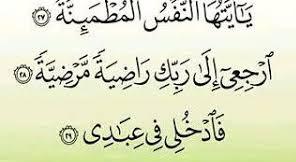 يَٰٓأَيَّتُهَا ٱلنَّفۡسُ ٱلۡمُطۡمَئِنَّةُ ٢٧
ٱرۡجِعِيٓ إِلَىٰ رَبِّكِ رَاضِيَةٗ مَّرۡضِيَّةٗ ٢٨
فَٱدۡخُلِي فِي عِبَٰدِي ٢٩